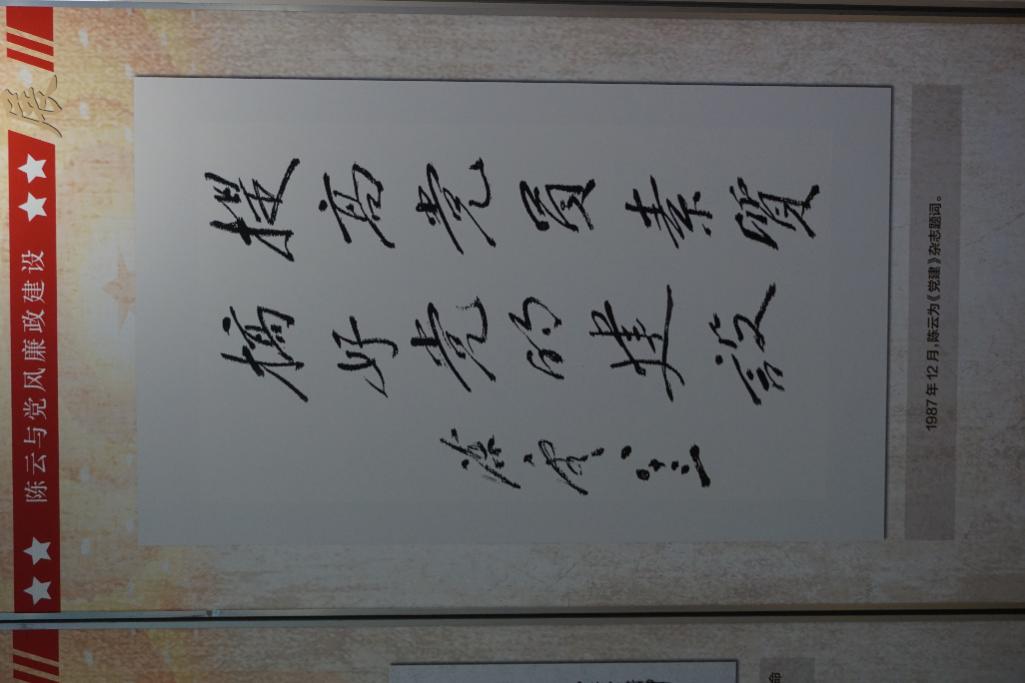 陈云与党风廉政建设
展
提高党员素质
搞好党的建设
陈云 八十三
1987年12月,陈云为《党建》杂志题词。
命